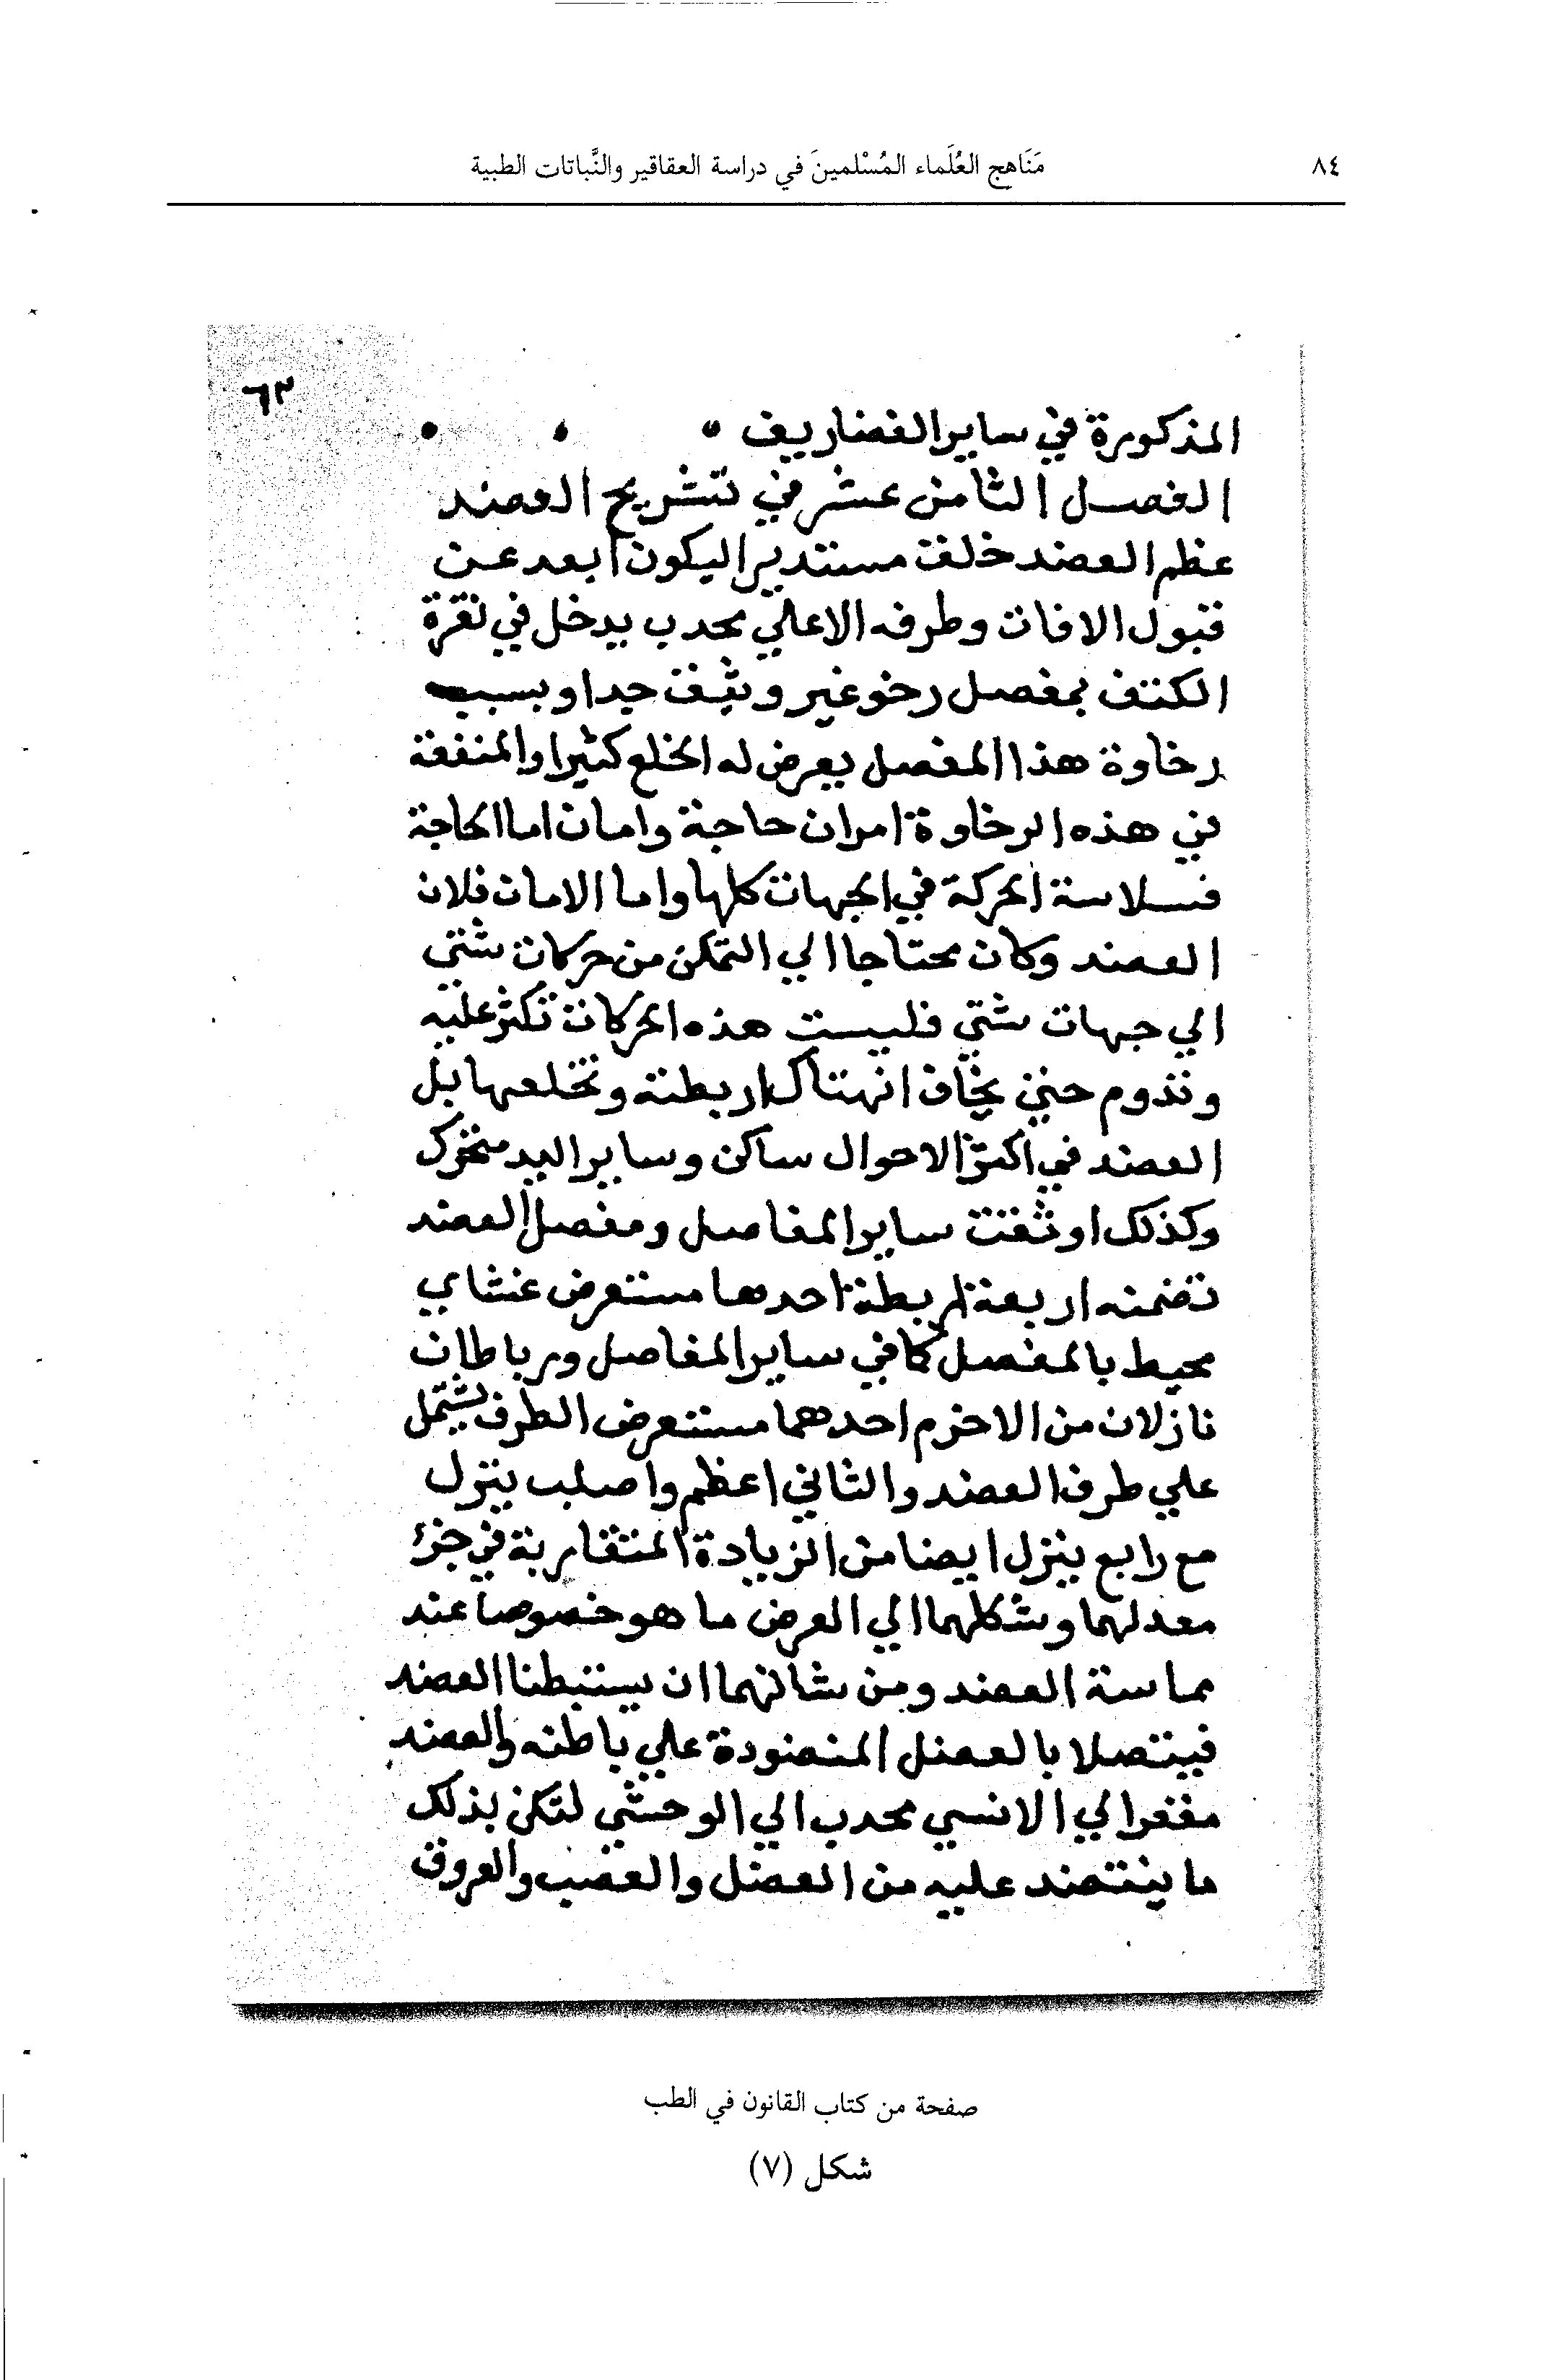 ٨٤
مَنَاهج العُلَماء المُسْلمينَ في دراسة العقاقير والنَّباتات الطبية
٦٢
المذكورة في ساير الغضاريف
الفصل الثامن عشر في تشريح العضد
عظم العضد خلق مستديرا ليكون ابعد عن
قبول الافات وطرفه الاعلي محدب يدخل في نقرة
الكتف بمفصل رخو غير وثيق جدا وبسبب
رخاوة هذا المفصل يعرض له الخلع كثيرا والمنفعة
في هذه الرخاوة امران حاجة وامان اما الحاجة
فسلاسة الحركة في الجهات كلها واما الامان فلان
العضد وكان محتاجا الي التمكن من حركات شتي
الي جهات شتي فليست هذه الحركات تكثر عليه
وتدوم حتي يخاف انهتاك اربطته وتخلعها بل
العضد في اكثر الاحوال ساكن وساير اليد متحرك
وكذلك اوثقت ساير المفاصل ومفصل العضد
تضمنه اربعة اربطة احدها مستعرض غشاي
محيط بالمفصل كما في ساير المفاصل ورباطان
نازلان من الاخرم احدهما مستعرض الطرف يشتمل
علي طرف العضد والثاني اعظم واصلب ينزل
مع رابع ينزل ايضا من الزيادة المتقاربة في جزء
معد لهما وشكلهما الي العرض ما هو خصوصا عند
مماسة العضد ومن شانهما ان يستبطنا العضد
فيتصلا بالعضل المنضودة علي باطنه والعضد
مقعر الي الانسي محدب الي الوحشي لتكن بذلك
ما ينتضد عليه من العضل والعصب والعروق
صفحة من كتاب القانون في الطب
شكل (٧)